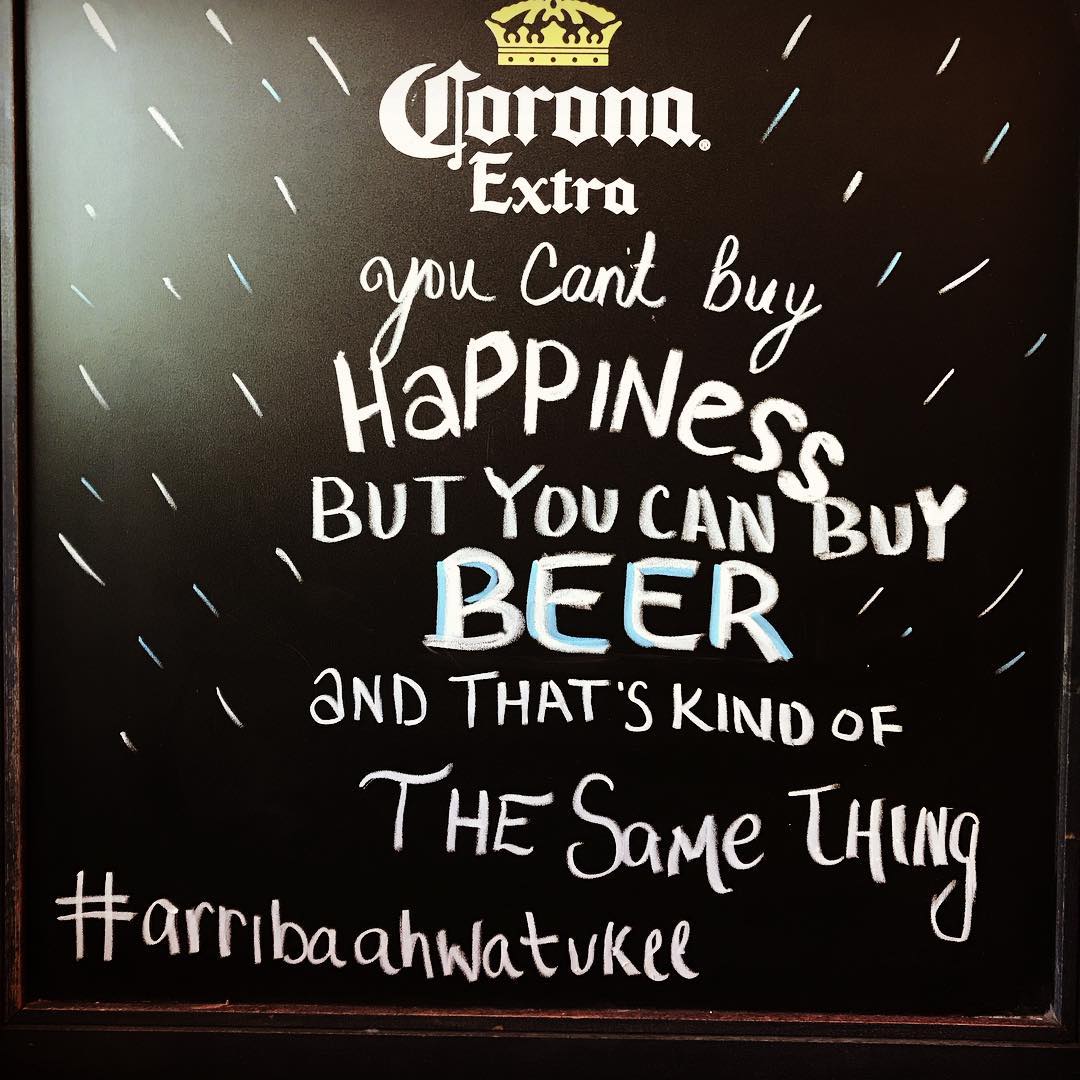 Corona
Extra
you Can't Buy
HaPPINess
BUT YOU CAN BUY
BEER
aND THAT'S KIND OF
THE SaMe THING
#arribaahwatukee